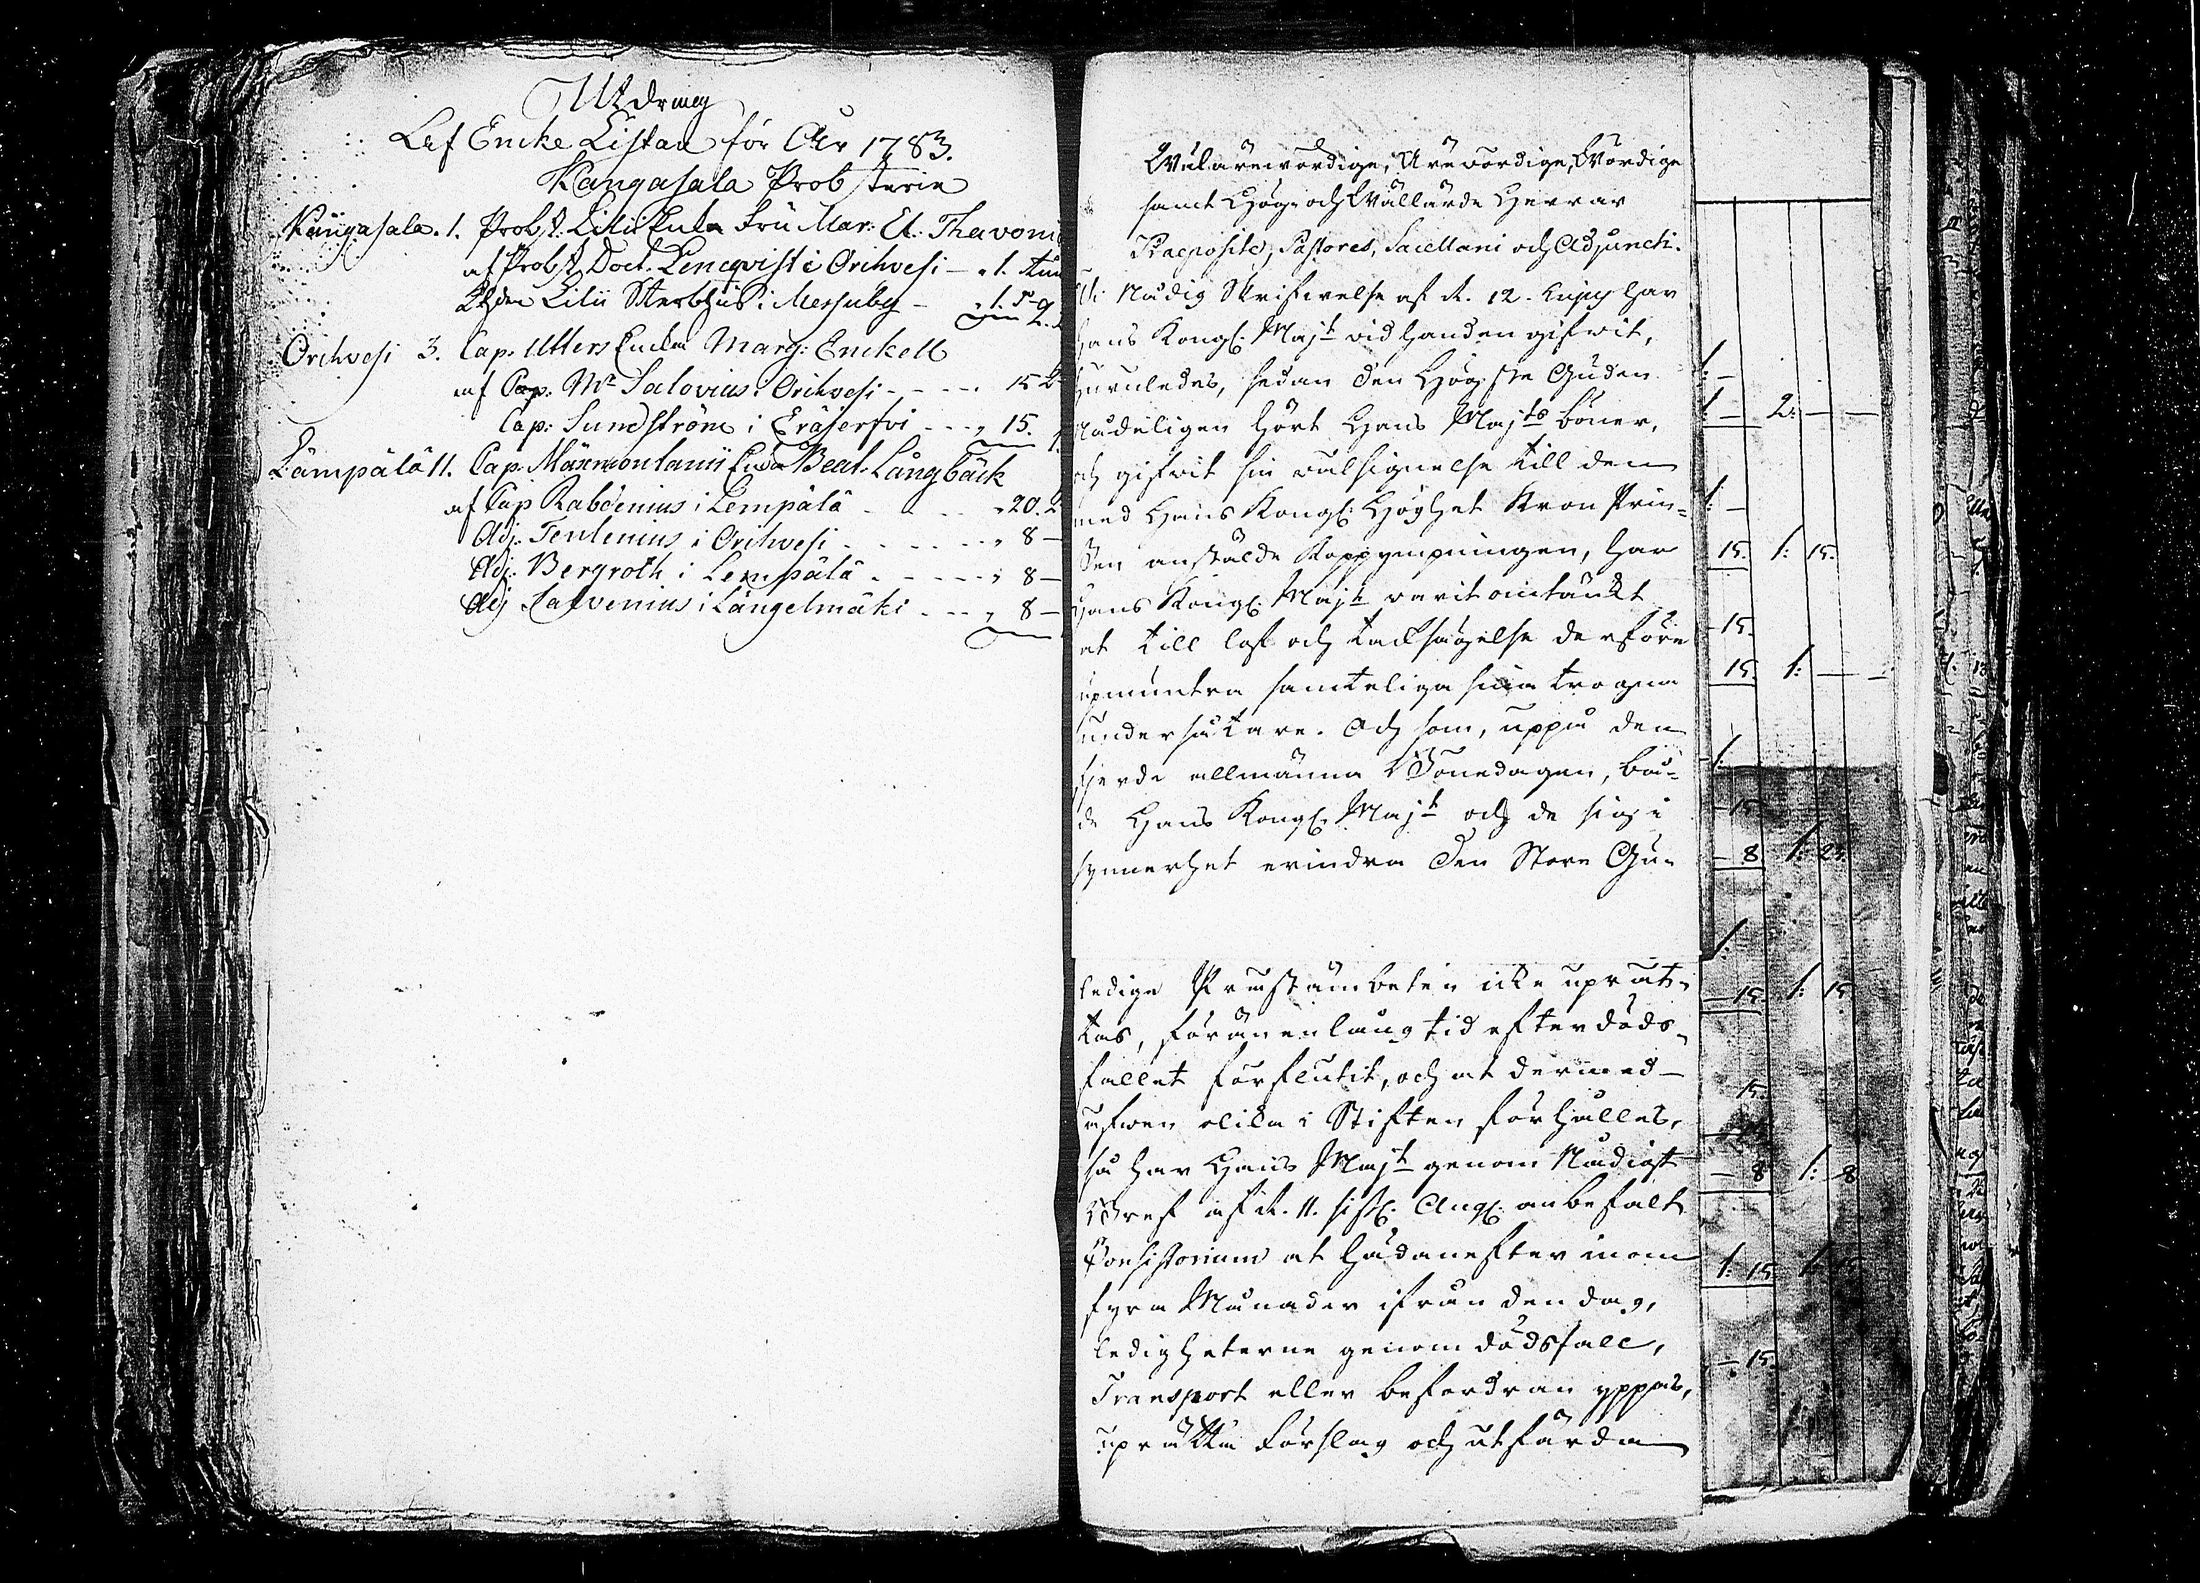 Utdrag
Af Enke Listan för Åhr 1783.
Kangasala Probsterie
Kangasala. 1. Probst. Lilii Enka Fru Mar: El: Thavoni
af Probst. Doct. Lencqvist i Orihvesi - " 1.
Lilii Sterbhus i Messuby - " 1.
Orihvesi 3. Cap. Utters Enka Marg: Enckell
af Cap. Mr Salovius i Orihvesi - - - - 15
Cap: Sundström i Eräjerfvi - - - " 15.
Lämpälä 11. Cap. Maxmontanii Enka Beat. Långbäck
af Cap Rabdenius i Lempälä - - - " 20.
Adj: Tenlenius i Orihvesi - - - - - " 8 —
Adj. Bergroth i Lempälä - - - - " 8 —
Adj Salvenius i Längelmäki - - - " 8 —
Wälärewördige, Ärewördige, Wördige
samt Hög- och Wällärde Herrar
Praepositi, Pastores, Sacellani och Adjuncti.
Nådig Skrifwelse af d. 12. har
Hans Kongl. Majt wid handen gifwit,
huruledes, sedan den Högste Guden
nådeligen hört Hans Majts böner,
och gifwit sin wälsignelse till den
med Hans Kongl. Höghet Kron Prin-
sen anstälde Koppympningen, har
Hans Kongl. Majt warit omtänkt
at till lof och tacksägelse derföre
upmuntra samteliga sina trogna
undersåtare. Och som, uppå den
fjerde allmänna Bönedagen, bå-
de Hans Kongl. Majt och de sig i
synnerhet erindra den Store Gu-
ledige Prestämbeten icke uprät-
tas, förän en lång tid efter döds-
fallet förflutit, och at dermed
äfwen olika i Stiften förhålles,
så har Hans Majt genom Nådigt
Bref af d. 11. sistl. Aug. anbefalt
Consistorium at hädanefter inom
fyra Månader ifrån den dag,
ledigheterne genom dödsfall,
Transport eller befordran yppas,
uprätta Förslag och utfärda
1: —
1 — 2: — —
1: —
15. 1: 15.
- 15.
15. 1: — —
1:
- 15
- 8 1: 23
1:
- 15. 1: 15
15.
- 8 1: 8
1: 15
- 15